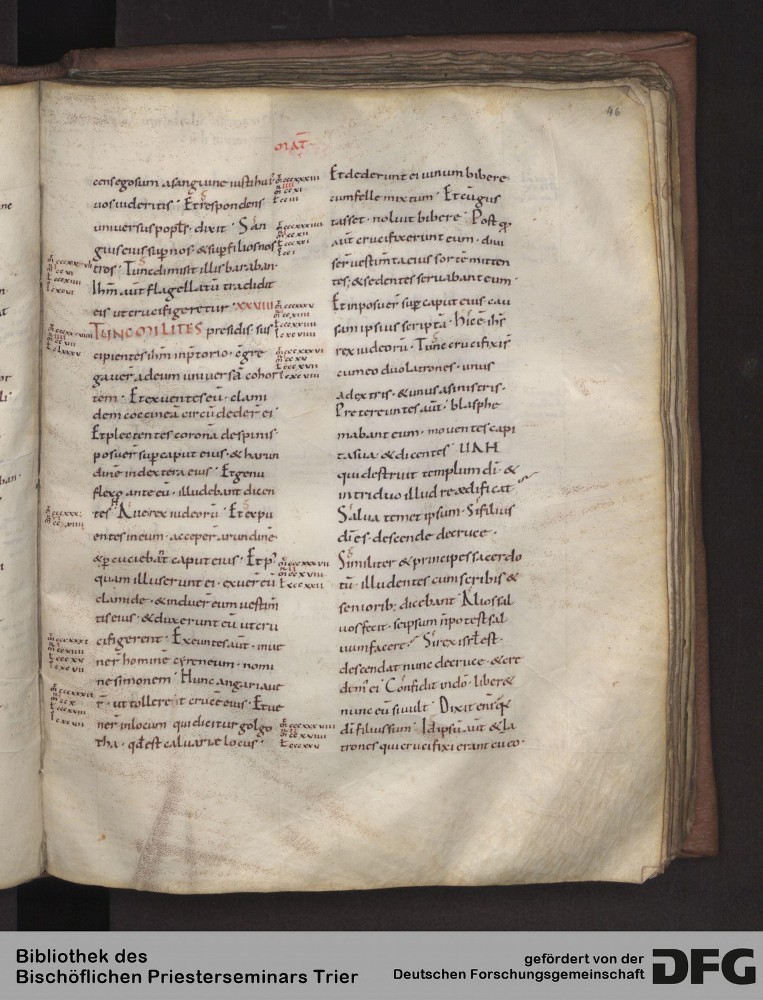 46
MAT
cens ego sum a sanguine iusti huiˀ
uos uideritis · Et respondens
uniuersus popls · dixit · San
guis eius sup nos · & sup filios nos
tros · Tunc dimisit illis baraban ·
Ihm aut flagellatū tradidit
eis ut crucifigeretur · XXVIII
TUNC MILITES presidis sus
cipientes ihm in p̄torio · cōgre
gauer̄ ad eum uniuersā cohor
tem · Et exuentes eū · clami
dem coccineā circū dederˉ ei
Et plectentes coronā de spinis ·
posuer̄ sup caput eius · & harun
dinē in dextera eius · Et genu
flexo ante eū · illudebant dicen
tes · Aue rex iudeorū · Et expu
entes in eum · acceper̄ arundinē ·
& percuciebāt caput eius · Et p̄
quam illuserunt ei · exuer̄ eū
clamide · & induer̄ eum uestim
tis eius · & duxerunt eū ut cru
cifigerent · Exeuntes aūt · inue
ner̄ hominē cyreneum · nomi
ne simonem · Hunc angariaue
r̄ · ut tolleret crucē eius · Et ue
ner̄ in locum qui dicitur golgo
tha · qd̄ est caluariæ locus ·
Et dederunt ei uinum bibere
cum felle mixtum · Et cū gus
tasset · noluit bibere · Post qͣ
aūt crucifixerunt eum · diui
ser̄ uestimta eius sorte mitten
tes · & sedentes seruabant eum ·
Et inposuer̄ sup caput eius cau
sam ipsius scriptā · Hic ē ihs
rex iudeorū · Tunc crucifixi sͬ
cum eo duo latrones · unus
a dextris · & unus a sinistris ·
Pretereuntes aūt · blasphe
mabant eum · mouentes capi
ta sua & dicentes · UAH
qui destruit templum dī · &
in triduo illud reædificat
Salua temet ipsum · Si filius
dī es · descende de cruce ·
Similiter & principes sacerdo
tū · illudentes cum scribis &
seniorib; dicebant · Alios sal
uos fecit · se ipsum n̄ potest sal
uum facere · Si rex isrl̄ est ·
descendat nunc de cruce · & cre
dim' ei · Confidit in dō · liber&
nunc eū si uult · Dixit enī q̄
dī filius sum · Id ipsū aūt & la
trones qui crucifixi erant cū eo ·
Bibliothek des
Bischöflichen Priesterseminars Trier
gefördert von der
Deutschen Forschungsgemeinschaft
DFG